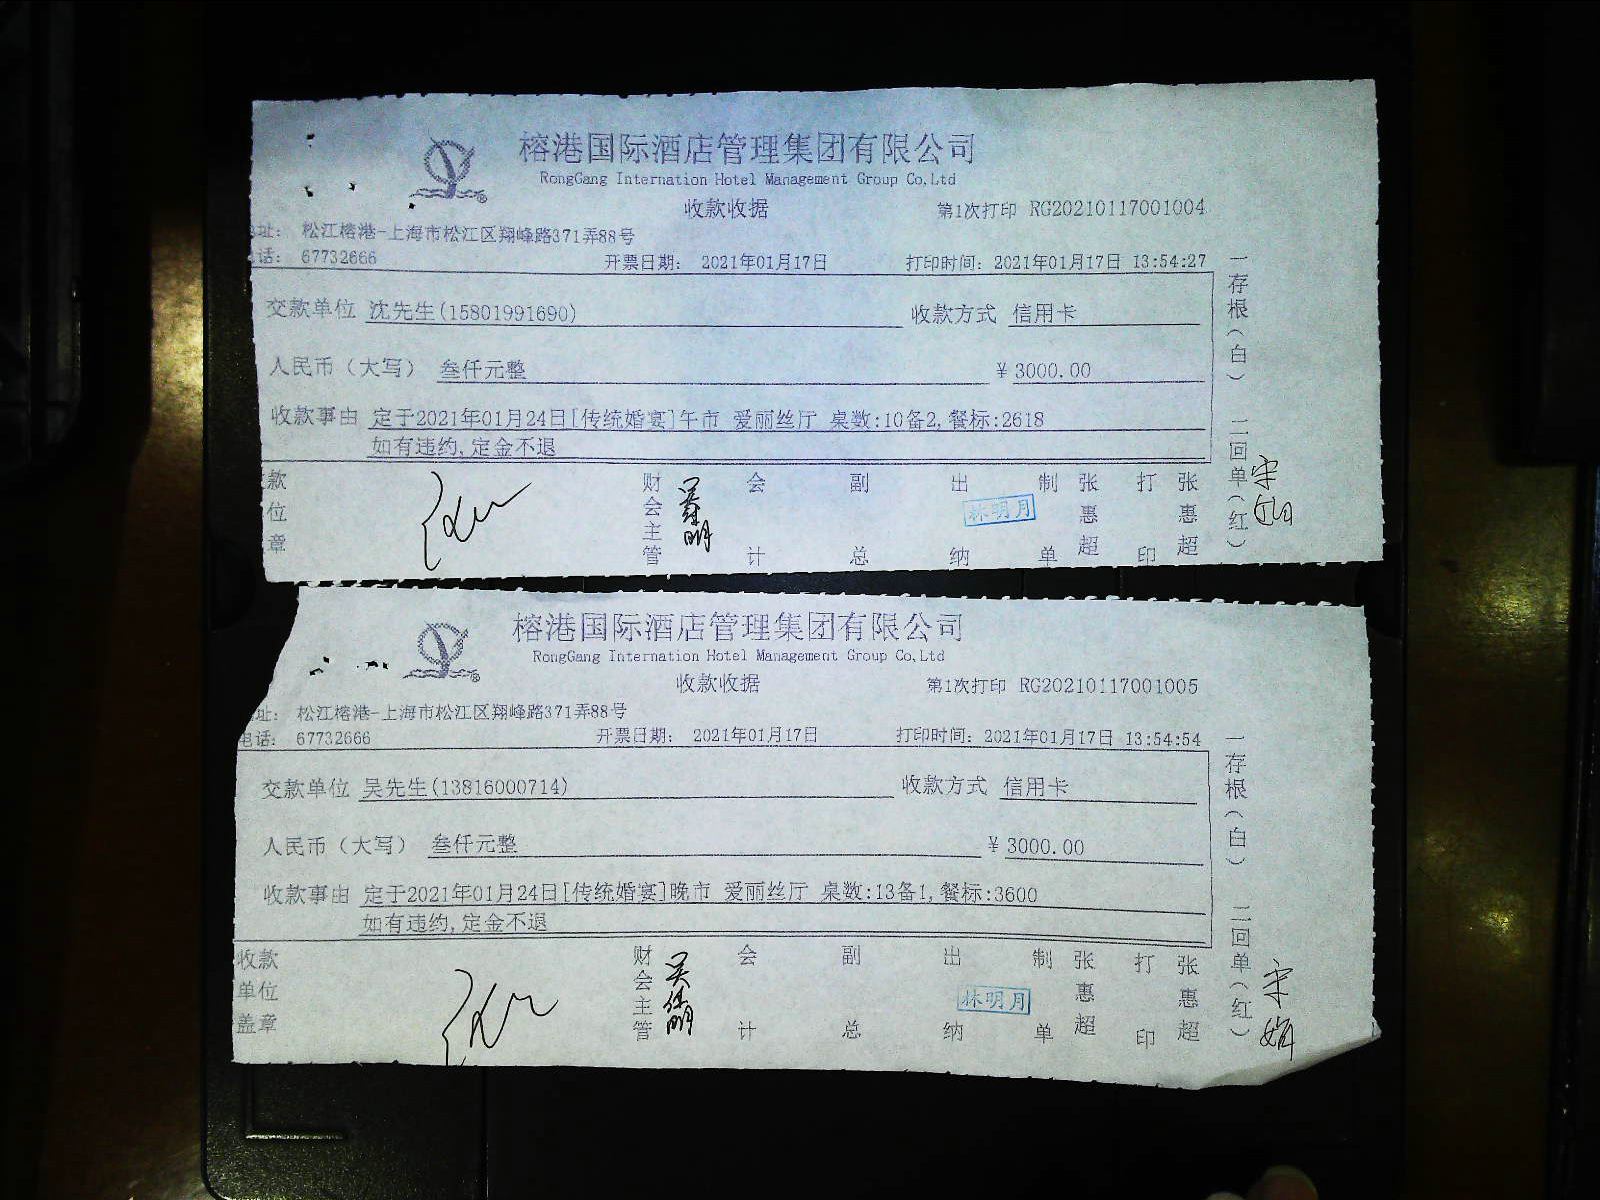 榕港国际酒店管理集团有限公司
RongGang Internation Hotel Management Group Co,Ltd
收款收据 第1次打印 RG20210117001004
址: 松江榕港-上海市松江区翔峰路371弄88号
话: 67732666 开票日期: 2021年01月17日 打印时间: 2021年01月17日 13:54:27
交款单位 沈先生(15801991690) 收款方式 信用卡
人民币(大写) 叁仟元整 ¥ 3000.00
收款事由 定于2021年01月24日[传统婚宴]午市 爱丽丝厅 桌数:10备2,餐标:2618
如有违约,定金不退
款位章 财会主管 会计 副总 出纳 林明月 制单 张惠超 打印 张惠超
一存根(白) 二回单(红)
榕港国际酒店管理集团有限公司
RongGang Internation Hotel Management Group Co,Ltd
收款收据 第1次打印 RG20210117001005
址: 松江榕港-上海市松江区翔峰路371弄88号
电话: 67732666 开票日期: 2021年01月17日 打印时间: 2021年01月17日 13:54:54
交款单位 吴先生(13816000714) 收款方式 信用卡
人民币(大写) 叁仟元整 ¥ 3000.00
收款事由 定于2021年01月24日[传统婚宴]晚市 爱丽丝厅 桌数:13备1,餐标:3600
如有违约,定金不退
收款单位盖章 财会主管 会计 副总 出纳 林明月 制单 张惠超 打印 张惠超
一存根(白) 二回单(红)